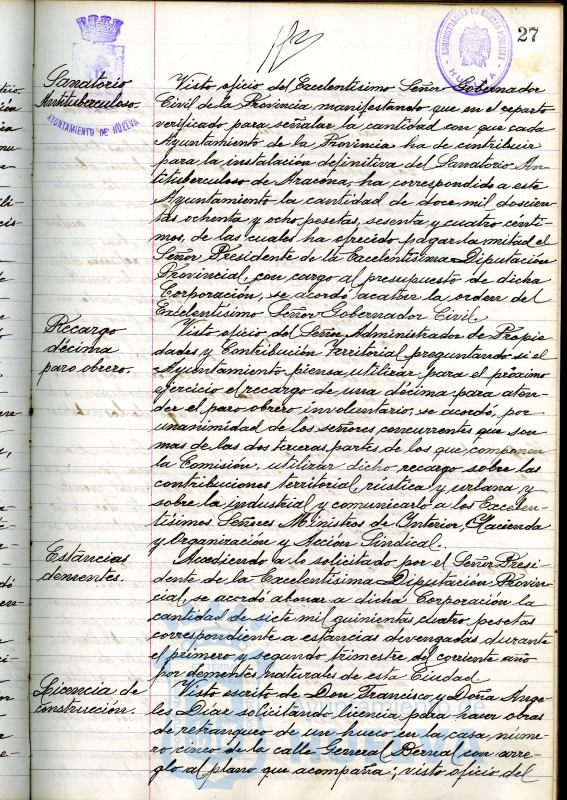 27
ADMINISTRACIÓN DE RENTAS PUBLICAS
HUELVA
AYUNTAMIENTO DE HUELVA
Sanatorio
Antituberculoso.
Visto oficio del Excelentísimo Señor Gobernador
Civil de la Provincia manifestando que en el reparto
verificado para señalar la cantidad con que cada
Ayuntamiento de la Provincia ha de contribuir
para la instalación definitiva del Sanatorio An-
tituberculoso de Aracena, ha correspondido a este
Ayuntamiento la cantidad de doce mil doscien-
tas ochenta y ocho pesetas, sesenta y cuatro cénti-
mos, de las cuales ha ofrecido pagar la mitad el
Señor Presidente de la Excelentísima Diputación
Provincial, con cargo al presupuesto de dicha
Corporación, se acordó acatar la orden del
Excelentísimo Señor Gobernador Civil.
Recargo
décima
paro obrero.
Visto oficio del Señor Administrador de Propie-
dades, y Contribución Territorial preguntando si el
Ayuntamiento piensa utilizar para el próximo
ejercicio el recargo de una décima para aten-
der el paro obrero involuntario, se acordó, por
unanimidad de los señores concurrentes que son
mas de las dos terceras partes de los que componen
la Comisión, utilizar dicho recargo sobre las
contribuciones territorial, rústica y urbana y
sobre la industrial y comunicarlo a los Excelen-
tísimos Señores Ministros de Interior, Hacienda
y Organización y Acción Sindical.
Estancias
dementes.
Accediendo a lo solicitado por el Señor Presi-
dente de la Excelentísima Diputación Provin-
cial, se acordó abonar a dicha Corporación la
cantidad de siete mil quinientas cuatro pesetas
correspondiente a estancias devengadas durante
el primero y segundo trimestre del corriente año
por dementes naturales de esta Ciudad.
Licencia de
construcción.
Visto escrito de Don Francisco y Doña Ange-
les Diaz solicitando licencia para hacer obras
de retranqueo de un hueco en la casa núme-
ro cinco de la calle General Bernal con arre-
glo al plano que acompaña; visto oficio del
Ayuntamiento de
HUELVA